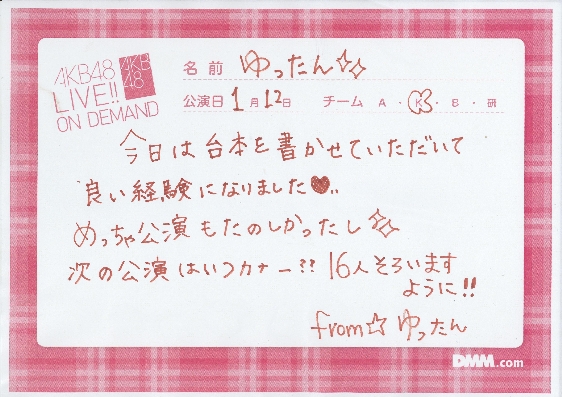 AKB48
LIVE!!
ON DEMAND
AKB
48
名前 ゆったん☆☆
公演日 1月12日 チーム A・K・B・研
今日は台本を書かせていただいて
良い経験になりました♥..
めっちゃ公演もたのしかったし☆
次の公演はいつカナー?? 16人そろいます
ように!!
from☆ゆったん
DMM.com